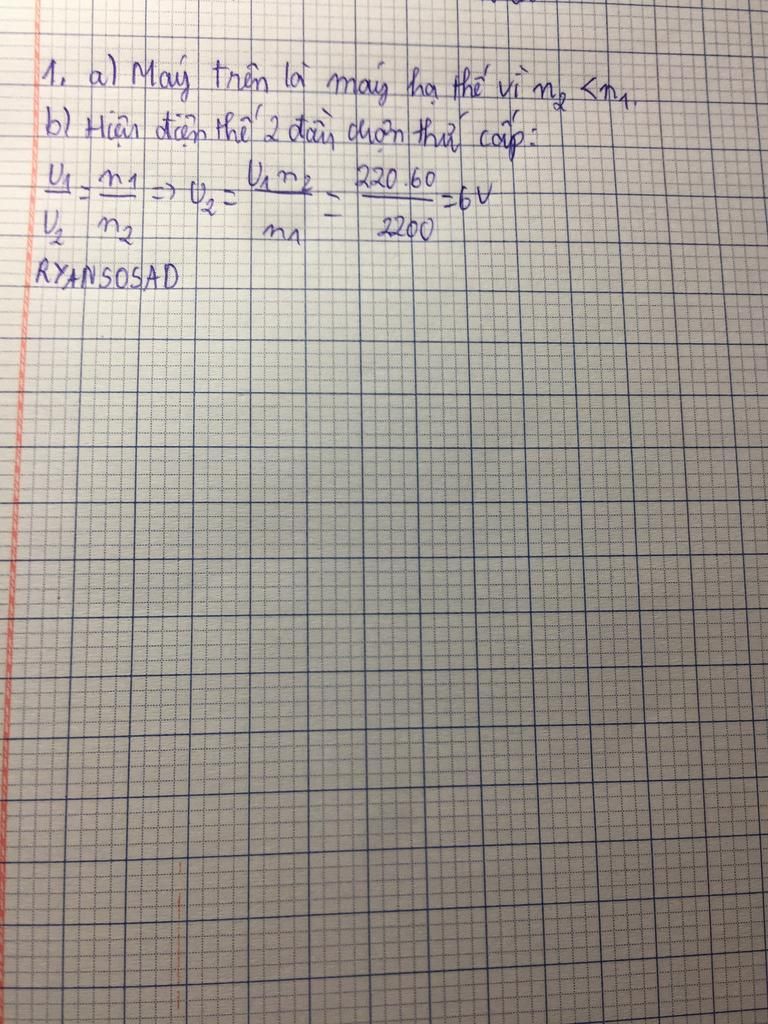 1. a) Máy trên là máy hạ thế vì n₂ < n₁.
b) Hiệu điện thế 2 đầu cuộn thứ cấp:
U₁/U₂ = n₁/n₂ => U₂ = U₁n₂/n₁ = 220.60/2200 = 6V
RYANSOSAD